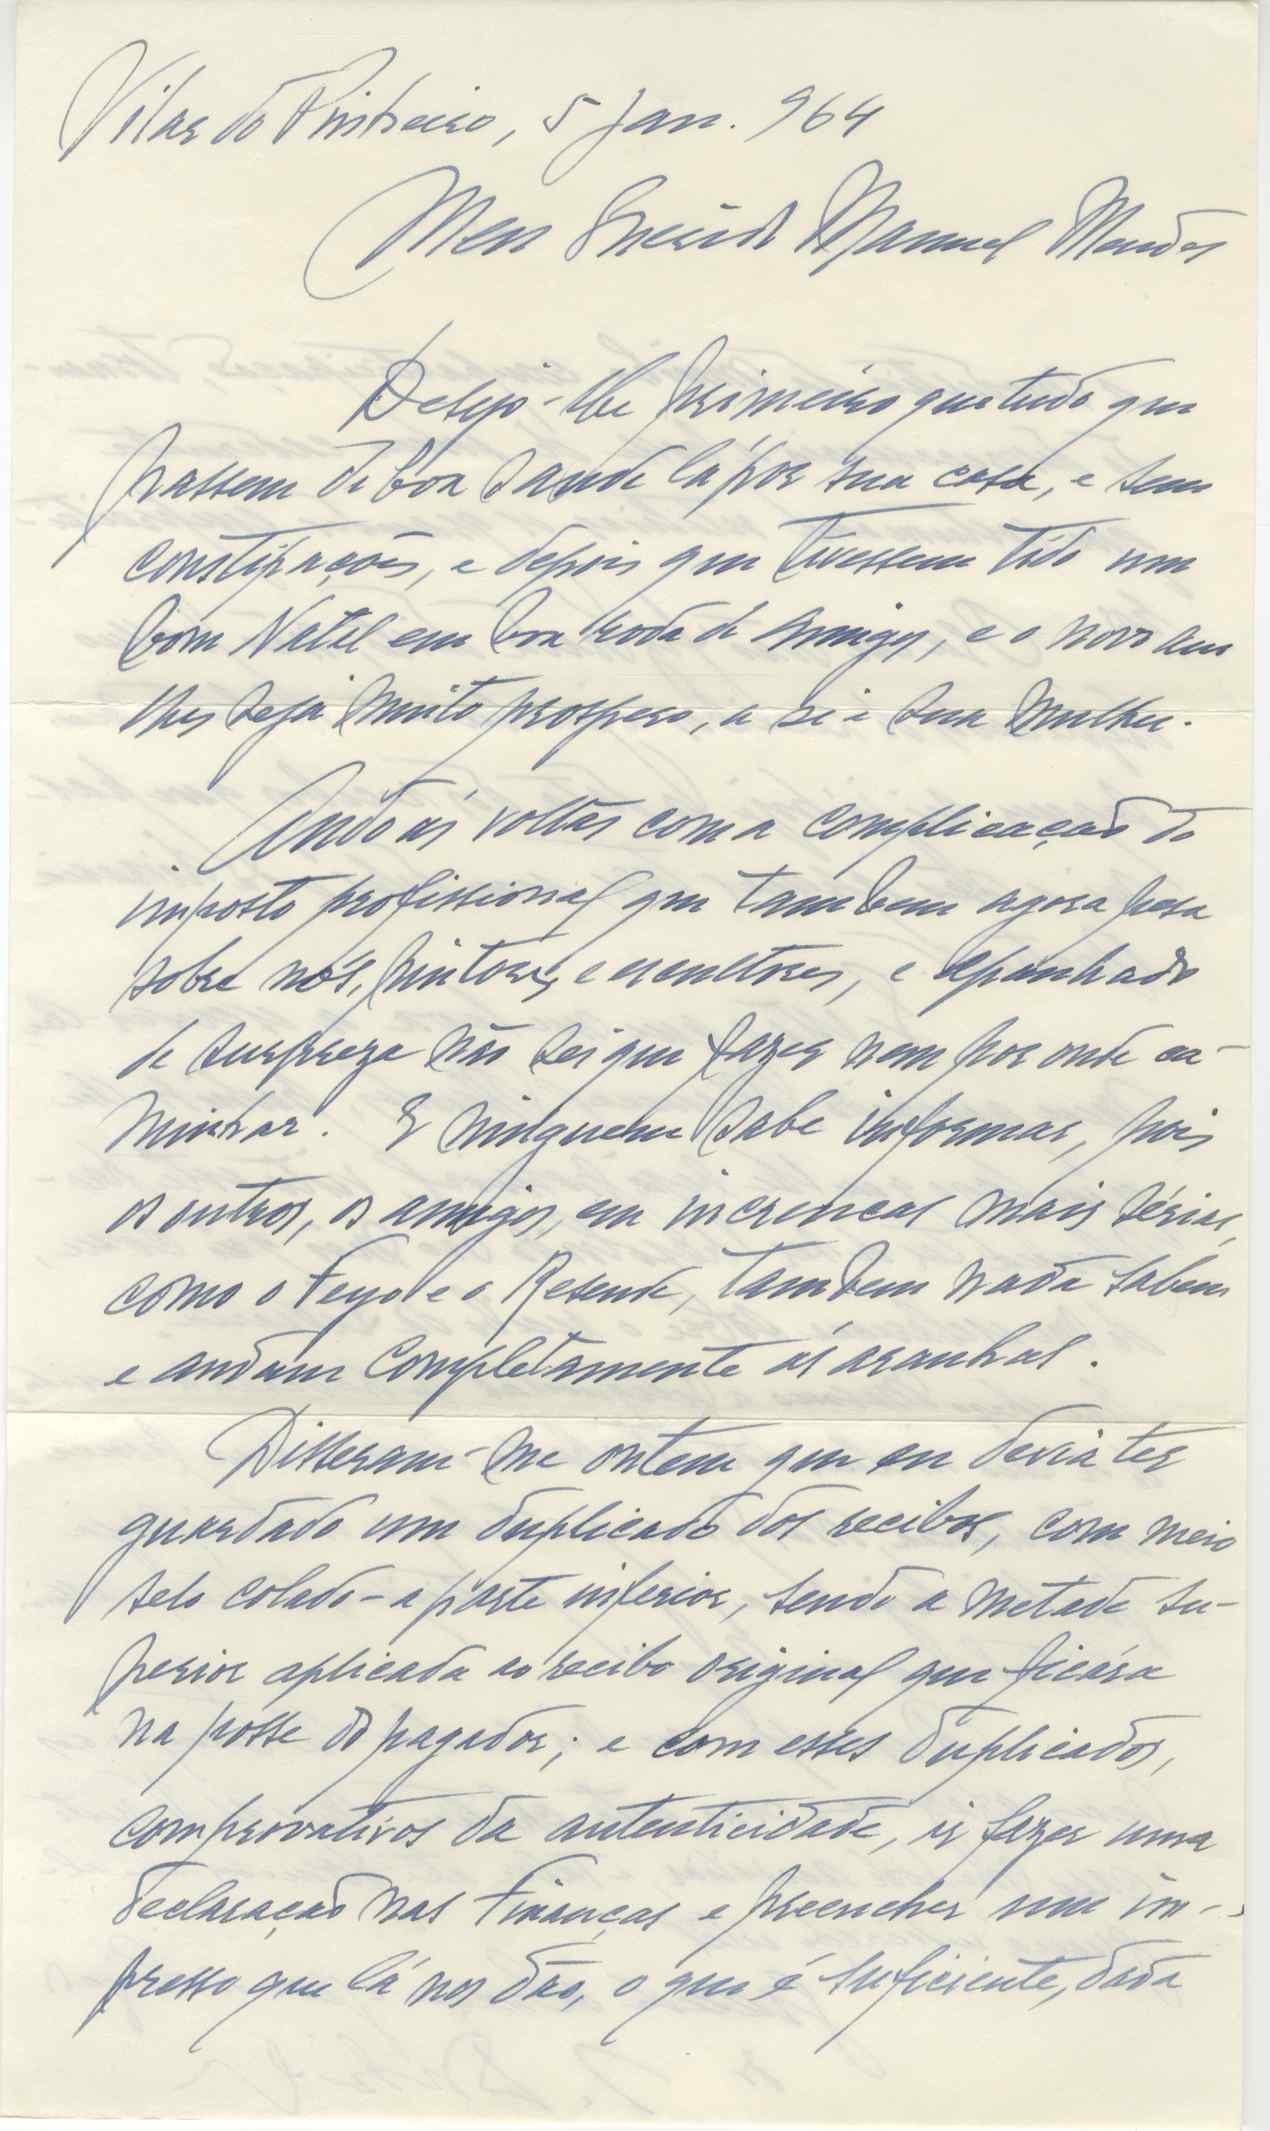 Vilar do Pinheiro, 5 Jan. 964
Meu Querido Manuel Mendes
Desejo-lhe primeiro que tudo que
passem de boa saude lá por sua casa, e sem
constipações, e depois que tivessem tido um
bom Natal em boa roda de amigos, e o novo ano
lhes seja muito prospero, a si e sua mulher.
Ando ás voltas com a complicação do
imposto profissional que tambem agora pesa
sobre nós, pintores e escultores, e apanhado
de surpreza não sei que fazer nem por onde ca-
minhar. E ninguem sabe informar, pois
os outros, os amigos, em increncas mais sérias,
como o Feyo e o Resende, tambem nada sabem
e andam completamente ás aranhas.
Disseram-me ontem que eu devia ter
guardado um duplicado dos recibos, com meio
selo colado - a parte inferior, sendo a metade su-
perior aplicada ao recibo original que ficára
na posse do pagador; e com esses duplicados,
comprovativos da autenticidade, ir fazer uma
declaração nas Finanças e preencher um im-
presso que lá nos dão, o que é suficiente, dada